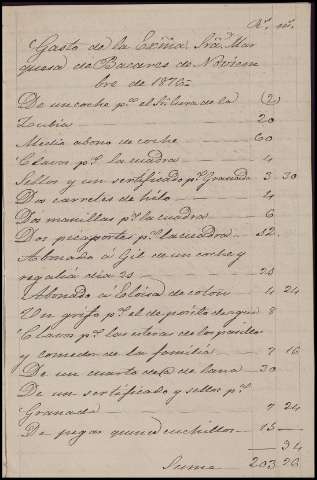 Rs. ms.
Gasto de la Exma. Sra. Mar
quesa de Bacares de Noviem
bre de 1876=
De un coche pa. el Sr. Usera de la (2)
Zubia 20
Media abono de coche 60
Clavos pa. la cuadra 4
Sellos y un sertificado pa. Granada 3 30
Dos carreles de hilo 4
Dos manillas pa. la cuadra 6
Dos picaportes pa. la cuadra 12
Abonado á Gil de un coche y
regalia dia 25 25
Abonado á Eloisa de colon 4 24
Un grifo pa. el deposito de agua 8
Clavos pa. las esteras de los pasillos
y comedor de la familia 7 16
De un cuarto de @ de lana 30
De un sertificado y sellos pa.
Granada 7 24
De pegar quince cuchillos 15
34
Suma 203 26